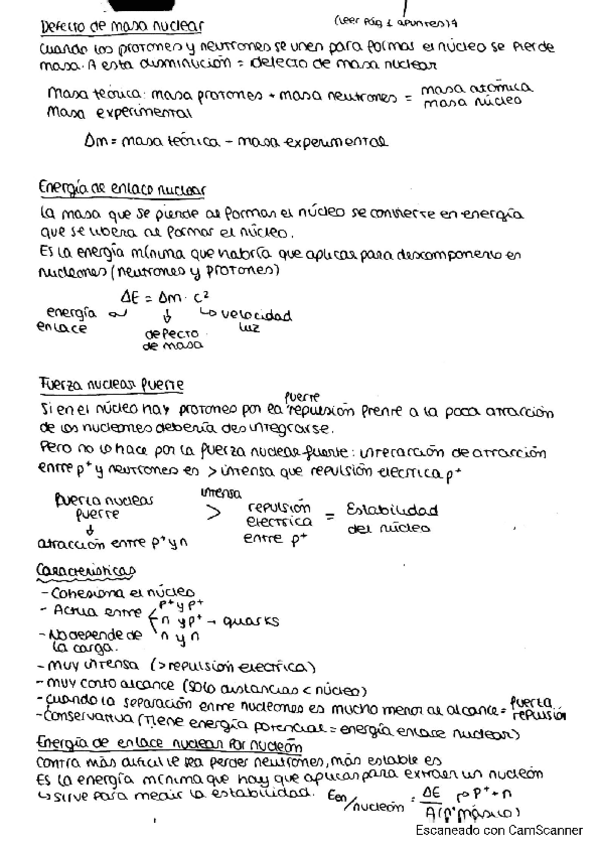 Defecto de masa nuclear (Leer pág 1 apuntes)
Cuando los protones y neutrones se unen para formar el núcleo se pierde
masa. A esta disminución = defecto de masa nuclear
Masa teórica: masa protones + masa neutrones = masa atómica
masa núcleo
Masa experimental
Δm = masa teórica - masa experimental
Energía de enlace nuclear
La masa que se pierde al formar el núcleo se convierte en energía
que se libera al formar el núcleo.
Es la energía mínima que habría que aplicar para descomponerlo en
nucleones (neutrones y protones)
ΔE = Δm · c²
energía enlace
↓ defecto de masa
↳ velocidad luz
Fuerza nuclear fuerte
fuerte
Si en el núcleo hay protones por la repulsión frente a la poca atracción
de los nucleones debería desintegrarse.
Pero no lo hace por la fuerza nuclear fuerte: interacción de atracción
entre p⁺ y neutrones es > intensa que repulsión electrica p⁺
fuerza nuclear fuerte
↓
atracción entre p⁺ y n
intensa
>
repulsión electrica entre p⁺
= Estabilidad del núcleo
Características
- Cohesiona el núcleo
- Actua entre p⁺ y p⁺
n y p⁺ → quarks
n y n
- No depende de la carga.
- Muy intensa (> repulsión electrica)
- Muy corto alcance (solo distancias < núcleo)
- Cuando la separación entre nucleones es mucho menor al alcance = fuerza repulsión
- Conservativa (Tiene energía potencial = energía enlace nuclear)
Energía de enlace nuclear por nucleón
Contra más dificil le sea perder neutrones, más estable es
Es la energía mínima que hay que aplicar para extraer un nucleón
↳ sirve para medir la estabilidad. Een/nucleón = ΔE / A (nº másico) → p⁺ + n
Escaneado con CamScanner